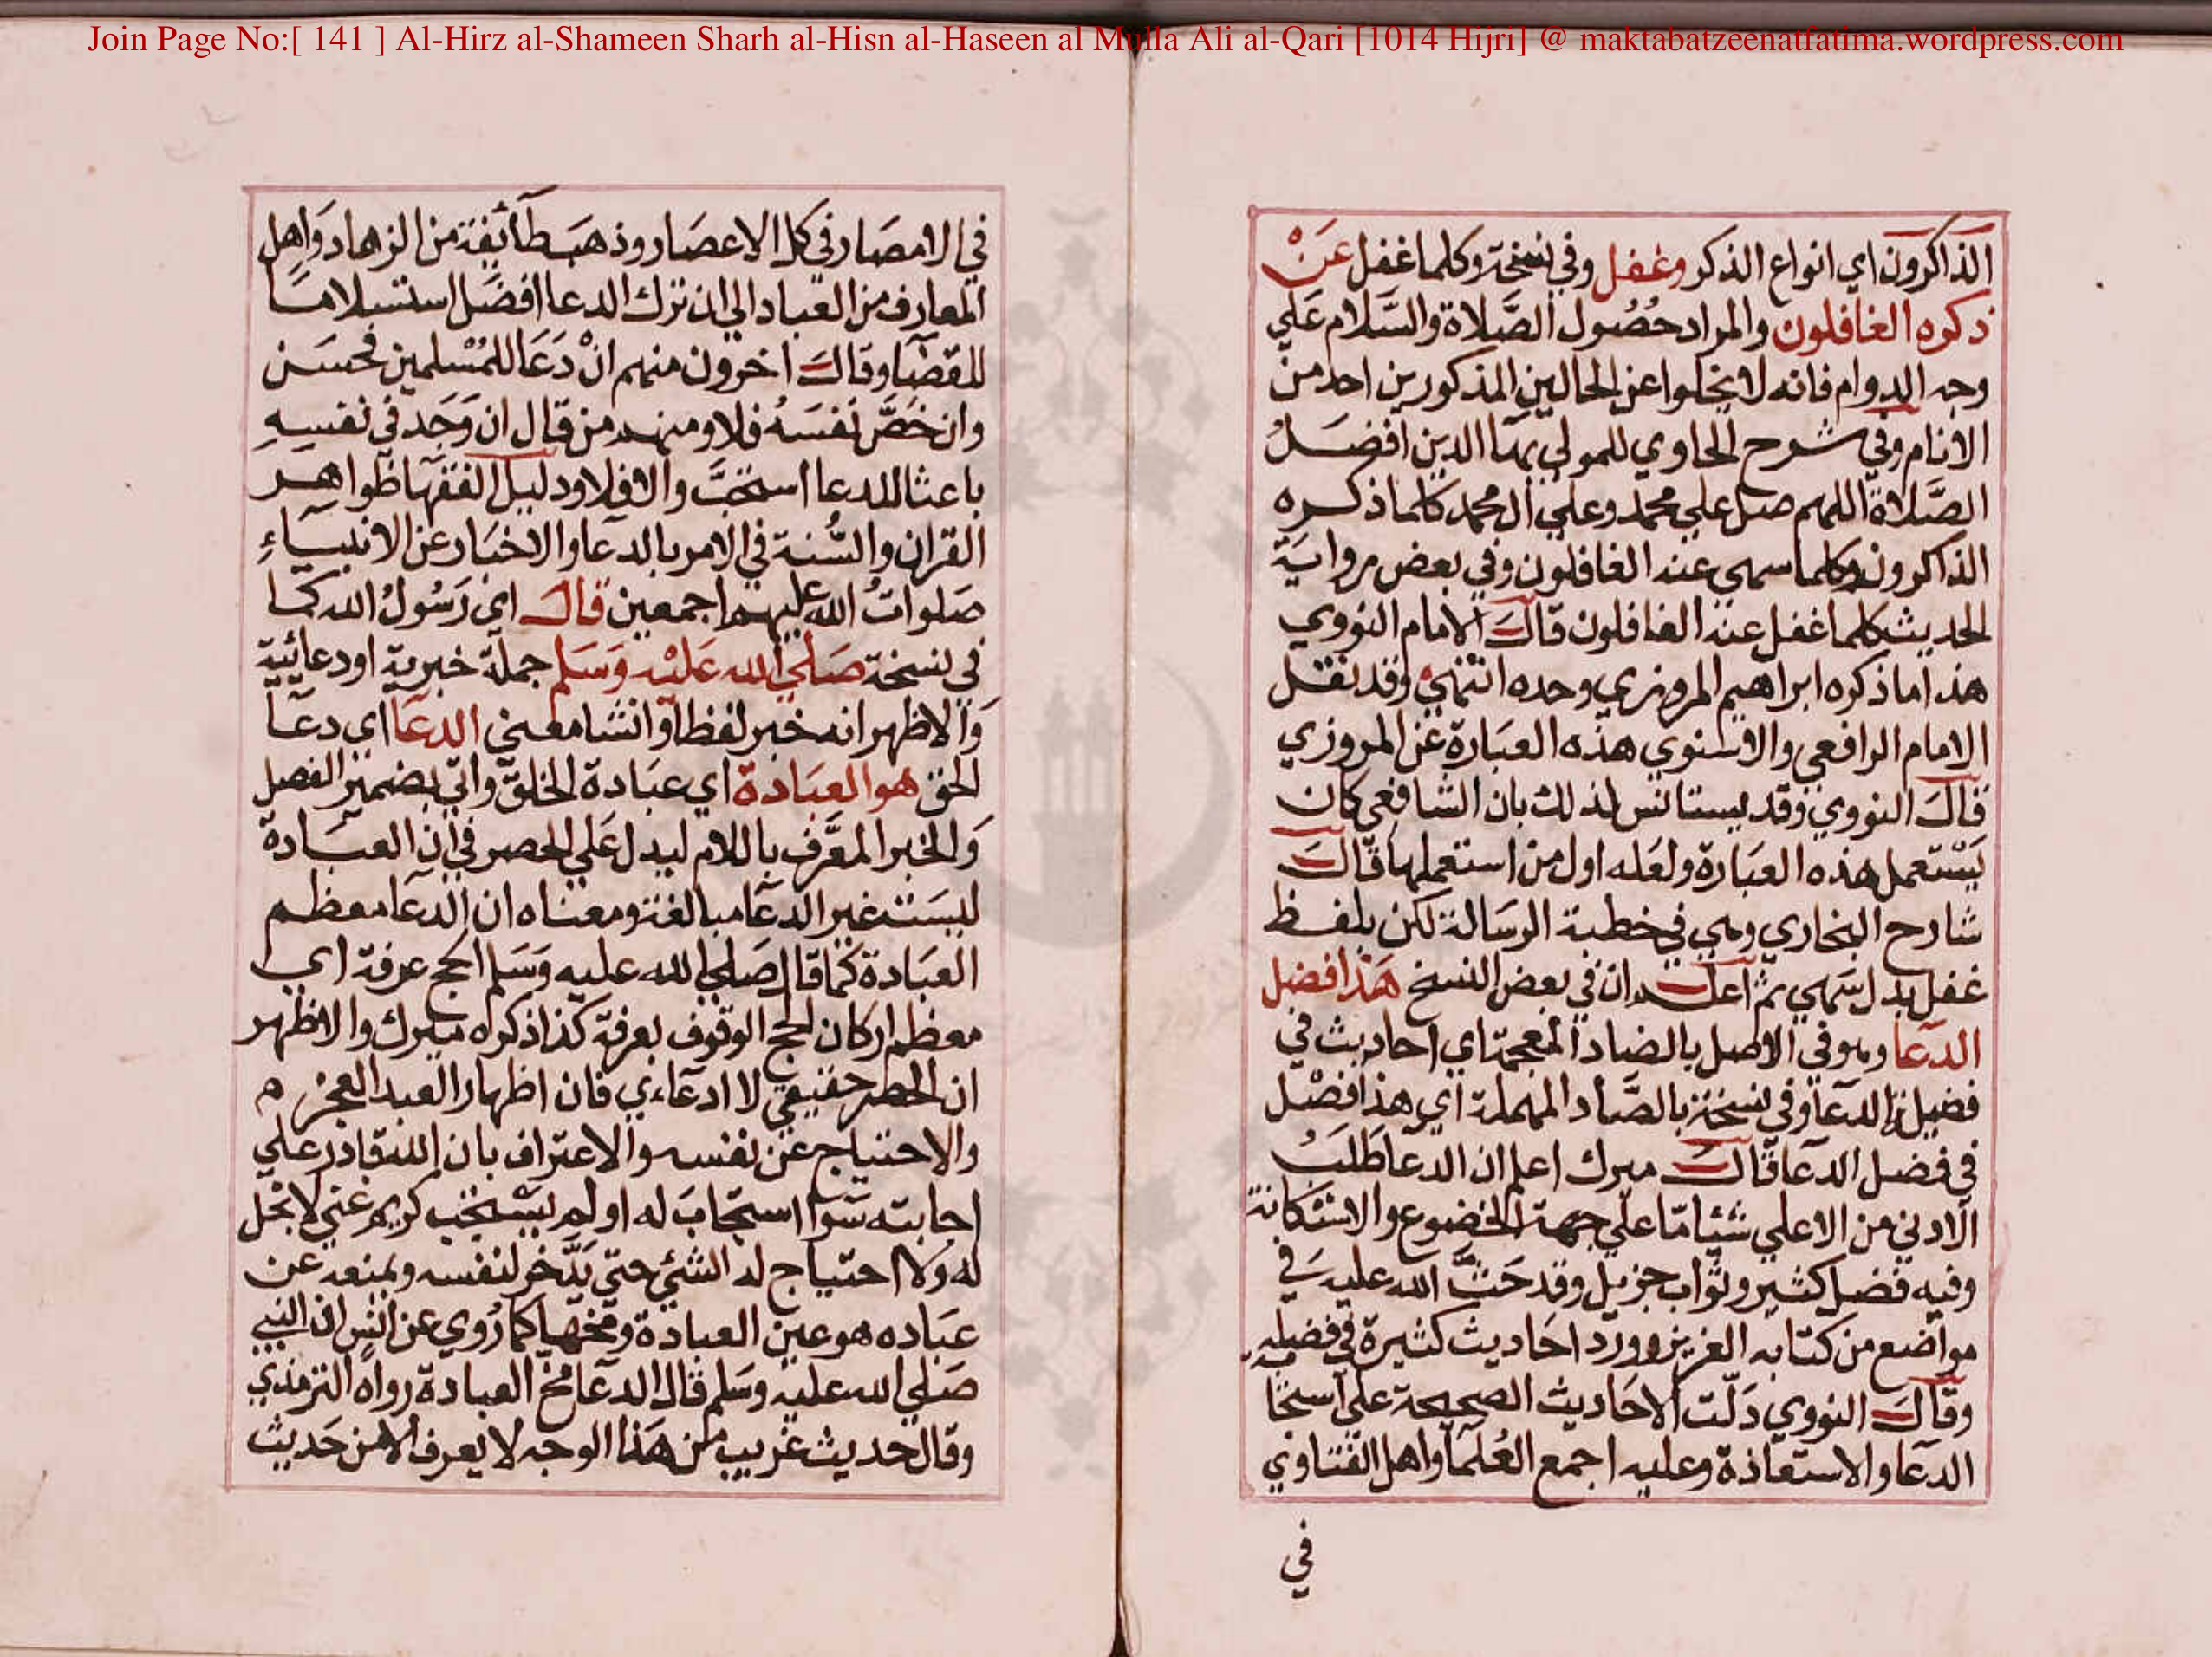 Join Page No:[ 141 ] Al-Hirz al-Shameen Sharh al-Hisn al-Haseen al Mulla Ali al-Qari [1014 Hijri] @ maktabatzeenatfatima.wordpress.com
الذاكرون اي انواع الذكر وغفل وفي نسخة وكلما غفل عَنْ
ذكره الغافلون والمراد حُصُول الصَّلاة والسَّلام عَلي
وجه الدوام فانه لا يخلوا عن الحالين المذكورين احد من
الانام وفي شرح الحاوي للمولي بهاالدين افضل
الصَّلاة اللهم صل علي محمد وعلي ال محمد كلما ذكره
الذاكرون وكلما سهي عنه الغافلون وفي بعض رواية
الحديث كلما غفل عنه الغافلون قال الامام النووي
هذا ما ذكره ابراهيم المروزي وحده انتهي وقد نقل
الامام الرافعي والاسنوي هذه العبارة عن المروزي
قال النووي وقد يستانس لذلك بان الشافعي كان
يَسْتعمل هذه العبارة ولعله اول من استعملها قال
شارح البخاري وهي في خطبة الرسالة لكن بلفظ
غفل بدل سَهي ثم اعلم ان في بعض النسخ هَذا افضل
الدعا وهو في الاصل بالضاد المعجمة اي احاديث في
فضيلة الدعا وفي نسخة بالصَّاد المهملة اي هذا فصْل
في فضل الدعا قال ميرك اعلم ان الدعا طَلَبُ
الادني من الاعلي شئيا مّا علي جهة الخضوع والاستكانة
وفيه فضل كثير وثواب جزيل وقد حَثَّ الله عليه في
مواضع من كتابه العزيز وورد احاديث كثيرة في فضله
وقال النووي دَلّت الاحاديث الصحيحة علي استحبا
الدعا والاستعاذة وعليه اجمع العُلما واهل الفتاوي
في
في الامصار في كل الاعصار وذهب طائفة من الزهاد وَاهل
المعارف من العباد الي ان ترك الدعا افضَل استسلاما
للقضا وقال اخرون منهم انْ دَعَا للمُسْلمين فحسَن
وان خَصَّ نَفسَهُ فلا ومنهم من قال ان وَجَد في نفسهِ
باعثا للدعا استحبَّ والا فلا ودليل الفقها ظواهر
القران والسُّنة في الامر بالدعا والاخبار عن الانبياءِ
صَلواتُ الله عليهم اجمعين قال اي رَسُولُ الله كما
في نسخة صَلي الله عَليْه وَسَلم جملة خبرية او دعائية
وَالاظهر انه خبر لفظا وانشا معني الدعا اي دعا
الحق هو العبادة اي عبادة الخلق واتي بضمير الفصل
وَالخبر المعَرَّف باللام ليدل عَلي الحصر في ان العبادة
ليسَت غير الدعا مبالغة ومعناه ان الدعا معظم
العبادة كما قال صَلي الله عليه وَسَلم الحج عرفة اي
معظم اركان الحج الوقوف بعرفة كذا ذكره ميرك والاظهر
ان الحصر حقيقي لا ادعاءي فان اظهار العبد العجز
والاحتياج عن نفسه والاعتراف بان الله قادر علي
اجابته سَوا استجابَ له او لم يَسْتجب كريم غني لا بخل
له ولا احتياج له الشئي حتي يَدَّخر لنفسه ويمنعه عن
عبَاده هو عين العبادة ومخها كما رُوي عن انس ان النبي
صَلي الله عليه وسَلم قال الدعا مخ العبادة رواه الترمذي
وقال حديث غريب من هَذا الوجه لا يعرف الا من حَديث